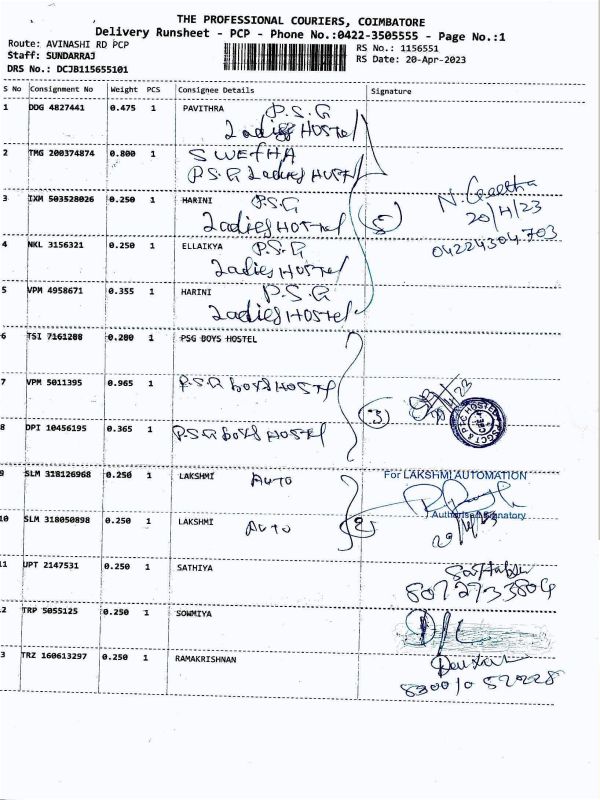 THE PROFESSIONAL COURIERS, COIMBATORE
Delivery Runsheet - PCP - Phone No.:0422-3505555 - Page No.:1
Route: AVINASHI RD PCP
Staff: SUNDARRAJ
DRS No.: DCJB115655101
RS No.: 1156551
RS Date: 20-Apr-2023
S No Consignment No Weight PCS Consignee Details Signature
1 DDG 4827441 0.475 1 PAVITHRA P.S.G
Ladies HOSTel
2 TMG 200374874 0.800 1 SWETHA
P.S.G Ladies HOSTel
3 IXM 503528026 0.250 1 HARINI P.S.G
Ladies HOSTel
5
N. Geetha
20/4/23
04224304703
4 NKL 3156321 0.250 1 ELLAIKYA P.S.G
Ladies HOSTel
5 VPM 4958671 0.355 1 HARINI P.S.G
Ladies HOSTel
6 TSI 7161288 0.280 1 PSG BOYS HOSTEL
7 VPM 5011395 0.965 1 P.S.G boys HOSTel
3
8 DPI 10456195 0.365 1 P.S.G boys HOSTel
9 SLM 318126968 0.250 1 LAKSHMI AUTO
For LAKSHMI AUTOMATION
Authorised Signatory
2
10 SLM 318050898 0.250 1 LAKSHMI AUTO
11 UPT 2147531 0.250 1 SATHIYA
8072733804
2 TRP 5055125 0.250 1 SOWMIYA
3 TRZ 160613297 0.250 1 RAMAKRISHNAN